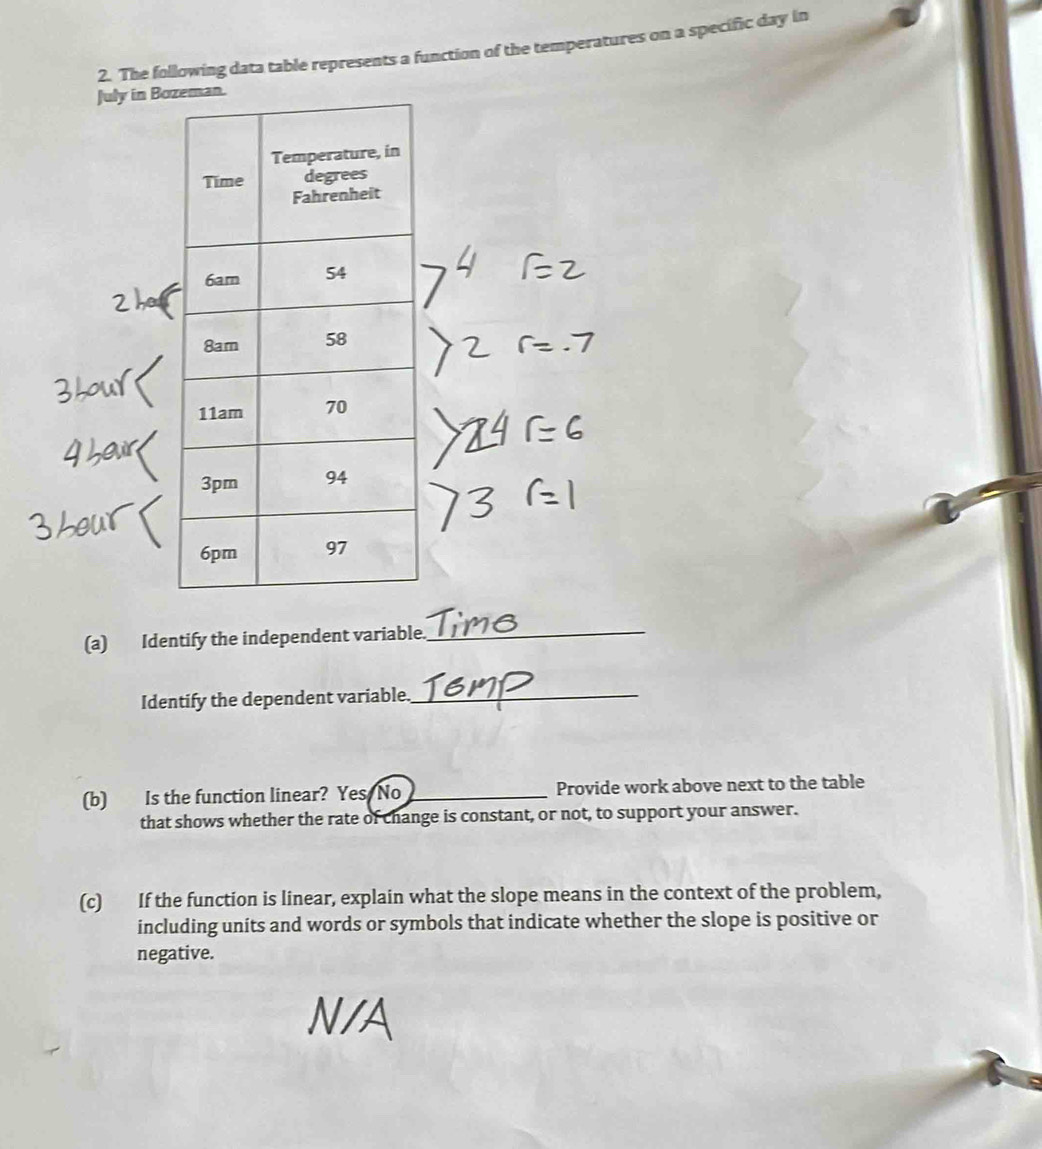 2. The following data table represents a function of the temperatures on a specific day in
July in Bozeman.
Time Temperature, in
degrees
Fahrenheit
6am 54
2 hour >4 r=2
8am 58
3 hour< >2 r=.7
11am 70
4 hour< >24 r=6
3pm 94
3 hour< >3 r=1
6pm 97
(a) Identify the independent variable. Time
Identify the dependent variable. Temp
(b) Is the function linear? Yes/No Provide work above next to the table
that shows whether the rate of change is constant, or not, to support your answer.
(c) If the function is linear, explain what the slope means in the context of the problem,
including units and words or symbols that indicate whether the slope is positive or
negative.
N/A